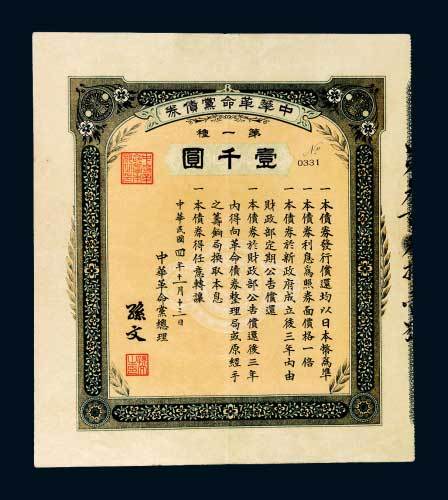 中華革命黨債券
第一種
壹千圓
No 0331
一本債券發行償還均以日本幣為準
一本債券利息為照券面價格一倍
一本債券於新政府成立後三年內由
財政部定期公告償還
一本債券於財政部公告償還後三年
內得向革命債券整理局或原經手
之籌餉局換取本息
一本債券得任意轉讓
中華民國四年十一月十三日
中華革命黨總理
孫文